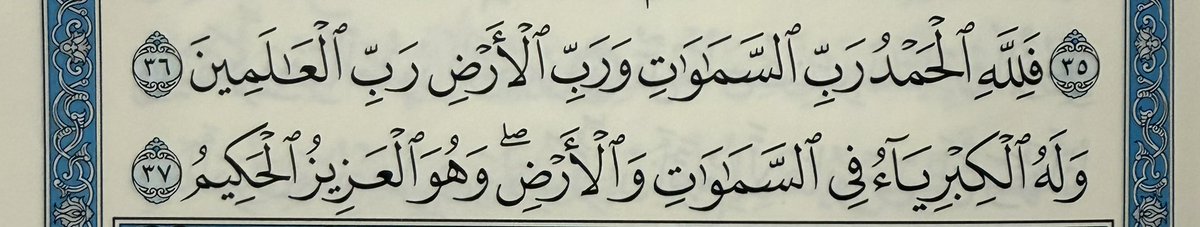 ۝٣٥ فَلِلَّهِ ٱلْحَمْدُ رَبِّ ٱلسَّمَـٰوَٰتِ وَرَبِّ ٱلْأَرْضِ رَبِّ ٱلْعَـٰلَمِينَ ۝٣٦
وَلَهُ ٱلْكِبْرِيَآءُ فِى ٱلسَّمَـٰوَٰتِ وَٱلْأَرْضِ ۖ وَهُوَ ٱلْعَزِيزُ ٱلْحَكِيمُ ۝٣٧